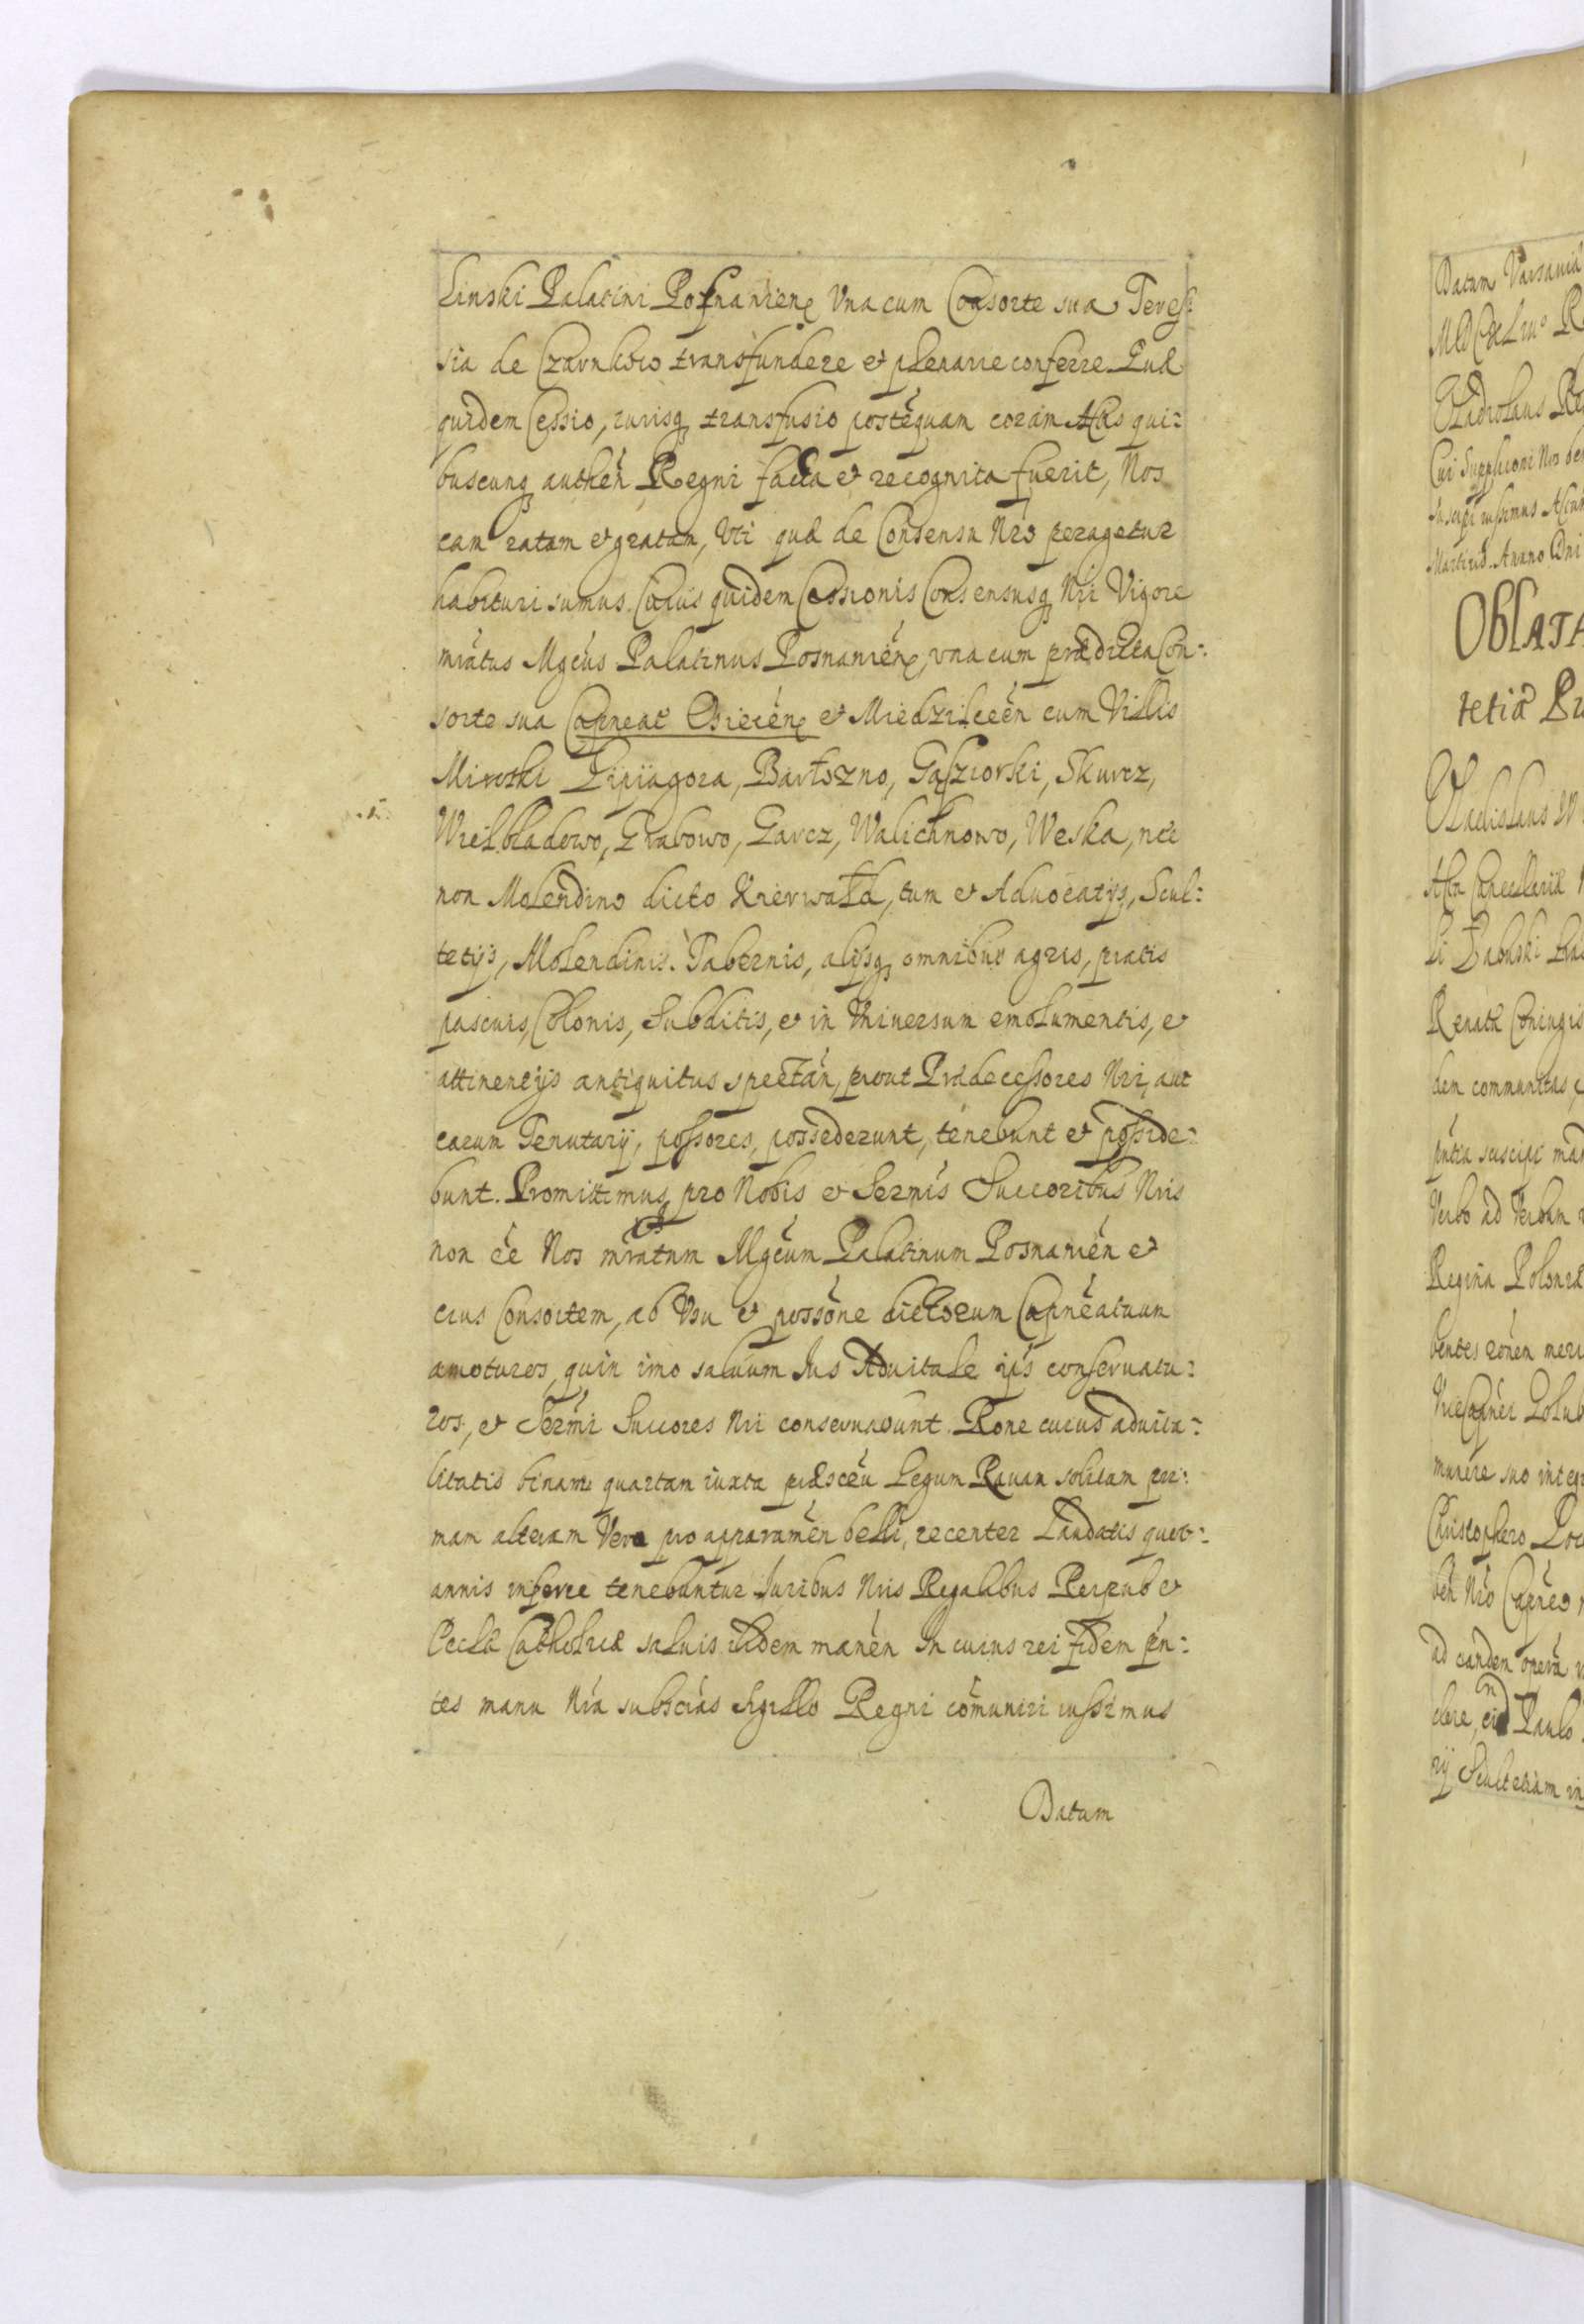 linski Palatini Posnanien una cum Consorte sua Teres:
sia de Czarnkow transfundere et plenarie conferre. Quæ
quidem Cessio, iurisq transfusio postequam coram Actis qui:
buscunq authen Regni facta et recognita fuerit, Nos
eam ratam et gratam, Uti quæ de Consensu Nro peragetur
habituri sumus. Cuius quidem Cessionis Consensusq Nri Vigore
mratus Mgcus Palatinus Posnanien, una cum prædicta Con:
sorte sua Capneat Osiecen et Miedzilceen cum Villis
Mirotki Lipiagora, Bartozno, Gasziorki, Skurcz,
Wielbladowo, Grabowo, Garcz, Walichnowo, Weska, nec
non Molendino dicto Kierwald, tum et Aduocatys, Scul:
tetys, Molendinis. Tabernis, alysq omnibus agris, pratis
pascuis, Colonis, Subditis, et in Universum emolumentis, et
attinentys antiquitus spectan, prout Prædecessores Nri, aut
earum Tenutary, possores, possederunt, tenebunt et posside:
bunt. Promittimusq pro Nobis et Sermis Succoribus Nris
non ee Nos mratum Mgcum Palatinum Posnanien et
eius Consortem, ab Usu et possone dictorum Capneatuum
amoturos, quin imo saluum Jus Aduitale ijs conservatu:
ros, et Sermi Succores Nri conservabunt. Rone cuius aduita:
litatis binam quartam iuxta præsceu Legum Ravam solitam pri:
mam alteram Vero pro apparamen belli, recenter Laudatis quot:
annis inferre tenebuntur Juribus Nris Regalibus Reipub et
Eccla Catholicæ saluis ibidem manen In cuius rei fidem pn:
tes manu Nra subscras Sigillo Regni comuniri iussimus
Datum
Datum Varsaviæ
Cui Suppliconi Nos be
Martiris. Anno Dni
OBLATA
tetiæ
Vladislaus IV
dem communitas
Verbo ad Verbum
Regina Poloniæ
munere suo integ
Christophero
ad eandem opera
Paulo
ry Scultetiam in